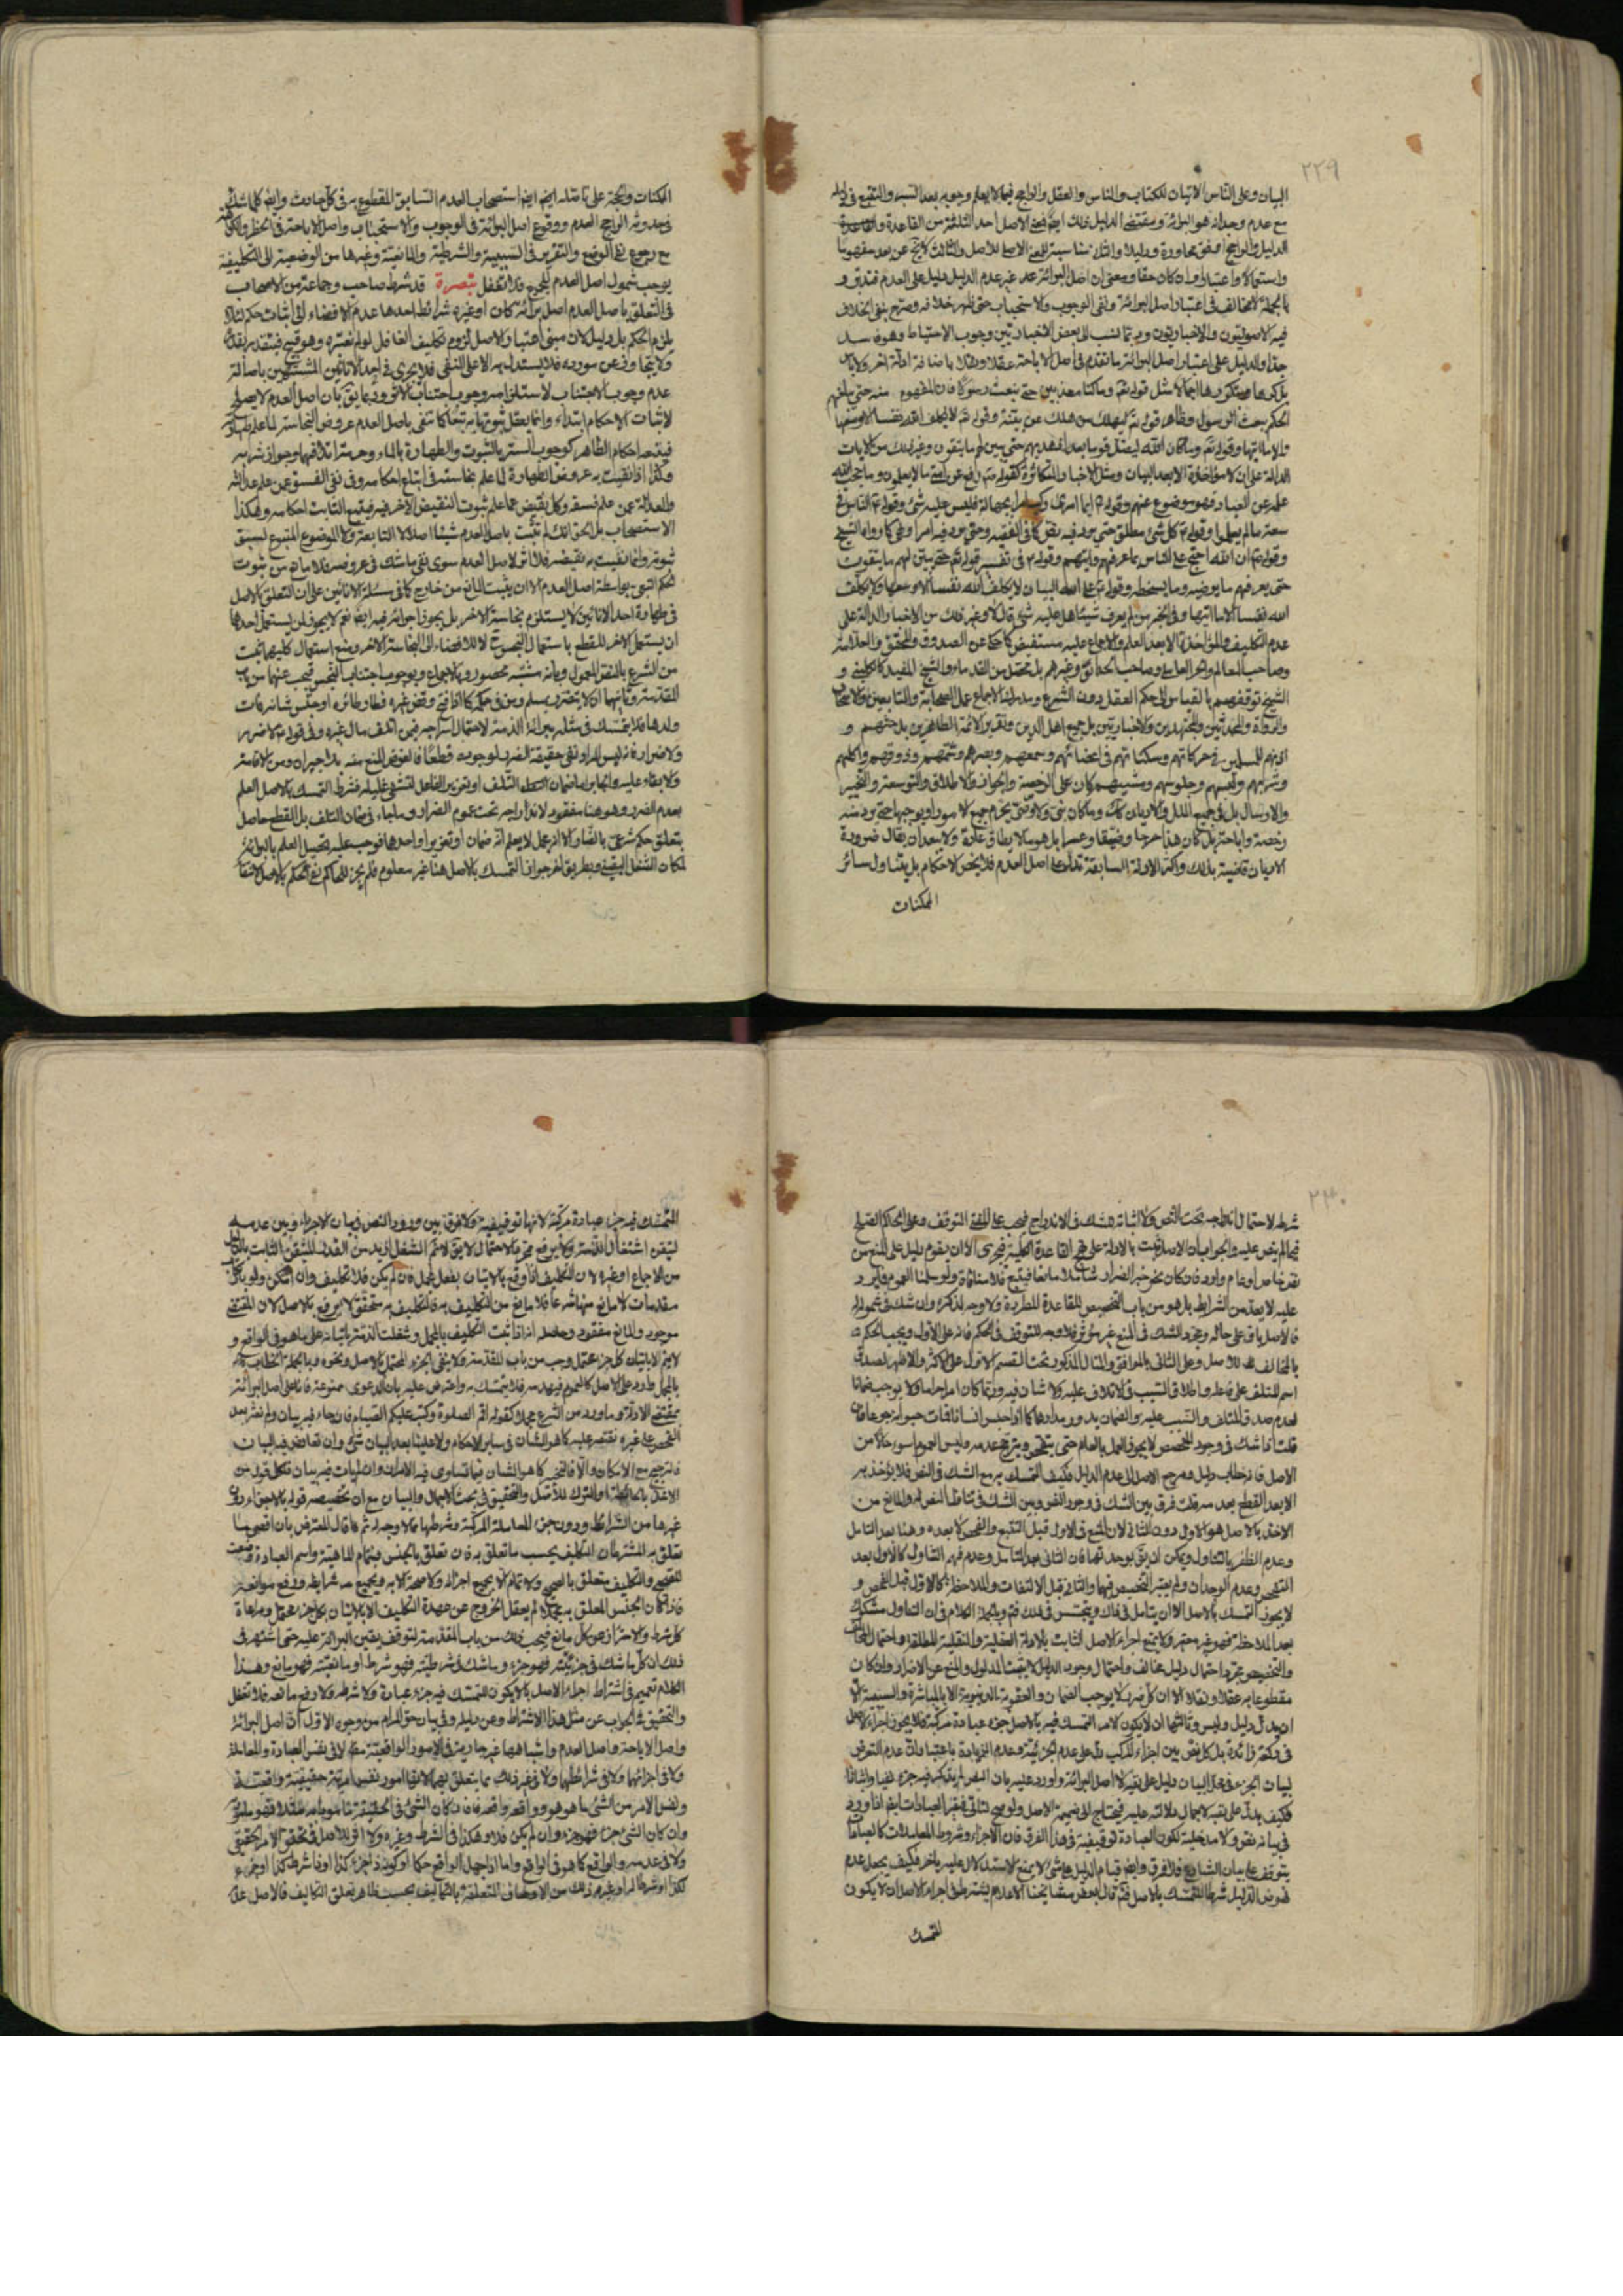 ٢٢٩
البيان وعلى الناس الاتيان للكتاب والناس والعقل والراجح فيما لا يعلم وجوبه بعد السبر والتتبع في ادلته
مع عدم وجدانه هو البرائة ومقتضى الدليل ذلك ايضا فمعنى الاصل احد الثلثة من القاعدة
الدليل والراجح
واستعمالا واعتبارا وان كان حقا ومعنى ان اصل البرائة عدم غير عدم الدليل دليل على العدم فتدبر و
بالجملة لا مخالف في اعتبار اصل البرائة ونفى الوجوب والاستحباب حتى يظهر خلافه وصرح بنفى الخلاف
فيه الاصوليون والاخباريون وربما نسب الى بعض الاخباريين وجوب الاحتياط وهو فاسد
جدا والدليل على اعتبار اصل البرائة ما تقدم في اصل الاباحة عقلا ونقلا باضافة ادلة اخر ولا باس
بذكرها اجمالا مثل قوله تعالى وما كنا معذبين حتى نبعث رسولا فان المفهوم منه حتى يبلغهم
الحكم ببعث الرسول وظاهر قوله تعالى ليهلك من هلك عن بينة وقوله تعالى لا يكلف الله نفسا الا وسعها
والا ما اتيها وقوله تعالى وما كان الله ليضل قوما بعد اذ هديهم حتى يبين لهم ما يتقون وغير ذلك من الايات
الدالة على ان لا مؤاخذة الا بعد البيان ومثل الاخبار المتكاثرة كقوله رفع عن امتي ما لا يعلمون وما حجب الله
علمه عن العباد فهو موضوع عنهم وقوله ايما امرئ ركب امرا بجهالة فليس عليه شئ وقوله الناس في
سعة ما لم يعلموا وقوله كل شئ مطلق حتى يرد فيه نص كما في الفقيه وحتى يرد فيه امر او نهى كما رواه الشيخ
وقوله ان الله احتج على الناس بما عرفهم واتيهم وقوله في تفسير قوله تعالى حتى يبين لهم ما يتقون
حتى يعرفهم ما يرضيه وما يسخطه وقوله على الله البيان لا يكلف الله نفسا الا وسعها ولا يكلف
الله نفسا الا ما اتيها وفي الخبر من لم يعرف شيئا هل عليه شئ قال لا وغير ذلك من الاخبار الدالة على
عدم التكليف والمؤاخذة الا بعد العلم والاجماع عليه مستفيض كما حكى عن الصدوق والمحقق والعلامة
وصاحب المعالم والحر العاملي وصاحب الحدائق وغيرهم بل تحصل من القدماء والشيخ المفيد كالكليني و
الشيخ توقفهم بالقياس الى حكم العقل دون الشرع ومدرك الاجماع عمل الصحابة والتابعين والاصحاب
والرواة والمحدثين والمجتهدين والاخباريين بل جميع اهل الدين وتقرير الائمة الطاهرين بل حثهم و
اذنهم للمسلمين في حركاتهم وسكناتهم في اعضائهم وسمعهم وبصرهم وشمهم وذوقهم واكلهم
وشربهم ولبسهم وجلوسهم ومشيهم كان على الرخصة والجواز والاطلاق والتوسعة والتخيير
والارسال بل في جميع الملل والاديان كذلك وما كان نبى ولا وصى يحرم جميع الامور او يوجبها حتى يرد منه
رخصة واباحة بل كان هذا حرجا وضيقا وعسرا بل هو مما لا يطاق عادة ولا يبعد ان يقال ضرورة
الاديان قاضية بذلك واكثر الادلة السابقة تدل على اصل العدم فلا يخص الاحكام بل يتناول سائر
الممكنات
الممكنات والحجة على تاصله ايضا استصحاب العدم السابق المقطوع به في كل حادث وايضا كلما شك
في حدوثه الراجح العدم ووقوع اصل البرائة في الوجوب والاستحباب واصل الاباحة في الحظر والكراهة
مع رجوع نفى الوضع والتقرير في السببية والشرطية والمانعية وغيرها من الوضعية الى التكليفية
يوجب شمول اصل العدم للجميع فلا تغفل تبصرة قد شرط صاحب وجماعة من الاصحاب
في التعلق باصل العدم اصل برائة كان او غيره شرائط احدها عدم الافضاء الى اثبات حكم لئلا
يلزم الحكم بلا دليل لان مبنى اعتبار الاصل لزوم تكليف الغافل لو لم نعتبره وهو قبيح فيتقدر بقدره
ولا يتجاوز عن مورده فلا يستدل به الا على النفى فلا يجرى في احد الانائين المشتبهين باصالة
عدم وجوب الاجتناب لاستلزامه وجوب اجتناب الاخر وربما يق بان اصل العدم لا يصلح
لاثبات الاحكام ابتداء وانما يعقل ثبوتها به تبعا كما تنفى باصل العدم عروض النجاسة لما علم طهارته
فيتبعه احكام الطاهر كوجوب الستر بالثوب والطهارة بالماء وحرمة اتلافهما وجواز شربه
وكذا اذا نفيت به عروض الطهارة لما علم نجاسته في اتباع احكامه وفي نفى الفسق عمن علم عدالته
والعدالة عمن علم فسقه وكل نقيض عما علم ثبوت النقيض الاخر فيه فيتبع الثابت احكامه وهكذا
الاستصحاب بل الحق انك لم تثبت باصل العدم شيئا اصلا لا التابع ولا الموضوع المتبوع لسبق
ثبوته وانما نفيت به نقيضه فلا اثر لاصل العدم سوى نفى ما شك في عروضه فلا مانع من ثبوت
الحكم التبعى بواسطة اصل العدم الا ان يثبت المانع من خارج كما في مسئلة الانائين على ان التعلق بالاصل
في طهارة احد الانائين لا يستلزم نجاسة الاخر بل يجوز اجرائه فيه ايضا نعم لا يجوز لمن يستعمل احدهما
ان يستعمل الاخر للقطع باستعمال النجس ح لا للافضاء الى النجاسة الاخر ومنع استعمال كليهما ثبت
من الشرع بالنص المعمول به بانه مشتبه محصور وبالاجماع وبوجوب اجتناب النجس فيجب عنهما من باب
المقدمة وثانيها ان لا يتضرر به مسلم ومن في حكمه كما اذا فتح قفص غيره فطار طائره او حبس شاة فمات
ولدها فلا يتمسك في مثله ببرائة الذمة لاحتمال اندراجه فيمن اتلف مال غيره وفي قوله لا ضرر
ولا ضرار فانه ليس المراد نفى حقيقة الضرر لوجوبه قطعا
ولا بقاء عليه
بعدم الضرر وهو هنا مفقود لاندراجه تحت عموم الضرار وما جاء في ضمان التلف بل القطع حاصل
بتعلق حكم شرعى بالضار الا انه مجمل لا يعلم انه ضمان او تعزير او احدهما فوجب عليه تحصيل العلم بالبرائة
لمكان الشغل اليقيني
٢٣٠
شرطه لاحتمال اندراجه تحت النص ولا اثباته للشك في الاندراج فيجب على المفتى التوقف وعلى الحاكم الصلح
فيما لم ينص عليه والجواب ان الاصل ثبت بالادلة على نهج القاعدة الكلية فيجرى الا ان يقوم دليل على المنع من
نص خاص او عام وارد فان كان نحو خبر الضرار شاملا مانعا فيتبع فلا منافاة ولو سلمنا العموم فالوارد
عليه لا يعد من الشرايط بل هو من باب التخصيص للقاعدة المطردة ولا وجه لذكره وان شك في شموله
فالاصل باق على حاله ومجرد الشك في المنع غير مؤثر فلا وجه للتوقف في الحكم فانه على الاول يجب الحكم
بالمخالف للاصل وعلى الثاني بالموافق والمثال المذكور تحت القسم الاول على الاكثر والاظهر لصدق
اسم المتلف على فاعله واطلاق السبب في الاتلاف عليه ولا شان فيه وربما كان امرا حراما ولا يوجب ضمانا
لعدم صدق المتلف والسبب عليه والضمان يدور مدارها كما اذا حبس انسانا فمات حيوانه جوعا فان
قلت اذا شك في وجود المخصص لا يجوز العمل بالعام حتى يتفحص ويترجح عدمه وليس العموم اسوء حالا من
الاصل فانه خطاب دليل ومرجع الاصل الى عدم الدليل فكيف التمسك به مع الشك في النص فلا يؤخذ به
الا بعد القطع بعدمه قلت فرق بين الشك في وجود النص وبين الشك في تناول النص له والمانع من
الاخذ بالاصل هو الاول دون الثاني لان المنع في الاول قبل التتبع والفحص لا بعده وهنا بعد التامل
وعدم الظفر بالتناول ويمكن ان يق بوحدتهما فان الثاني بعد التامل وعدم فهم التناول كالاول بعد
التفحص وعدم الوجدان ولم يعتبر التخصيص فيهما والثاني قبل الالتفات والملاحظة كالاول قبل الفحص و
لا يجوز التمسك بالاصل الا ان يتامل في ذلك ويتجسس في ذلك
بعد الملاحظة فهو غير معتبر ولا يمنع اجراء الاصل الثابت بالادلة العقلية والنقلية المطلقة واحتمال المخالف
والتخصيص مجرد احتمال دليل مخالف واحتمال وجود الدليل لا يثبت المدلول والمنع عن الاضرار وان كان
مقطوعا به عقلا ونقلا الا ان كل ضرر لا يوجب الضمان والعقوبة الدنيوية الا بالمباشرة والسببية الا
ان يدل دليل وليس وثالثها ان لا يكون الامر المتمسك فيه بالاصل جزء عبادة مركبة فلا يجوز اجراء الاصل
في ركعة زائدة بل كل نص بين اجزاء المركب دل على عدم جزئية وعدم الزيادة باعتبار دلالة عدم التعرض
لبيان الجزء في محل البيان دليل على نفيه لا اصل البرائة واورد عليه بان النص لم يقتض فيه جزء نفيا واثباتا
فكيف يدل على نفيه لاجمال دلالته عليه فيحتاج الى ضميمة الاصل ولو صح لتاتى في غير العبادات ايضا اذا ورد
في بيانه نص ولا مدخلية لكون العبادة توقيفية في هذا الفرق فان الاجزاء وشروط المعاملات كالعبادات
يتوقف على بيان الشارع فلا فرق وايضا قيام الدليل على شئ لا يمنع الاستدلال عليه باخر فكيف يجعل عدم
نهوض الدليل شرطا للتمسك بالاصل ثم قال بعض مشايخنا الاعلام يشترط في اجراء الاصل ان لا يكون
المتمسك
المتمسك فيه جزء عبادة مركبة لانها توقيفية ولا فرق بين ورود النص في بيان الاجزاء وبين عدمه
ليتقن اشتغال الذمة ولا يرفع مجرد الاحتمال لا يق لا نعلم الشغل ازيد من القدر المتيقن الثابت بالدليل
من الاجماع او غيره لان التكليف اذا وقع بالاتيان بفعل مجمل فان لم يكن فلا تكليف وان امكن ولو باتيان
مقدمات لا مانع منها شرعا فلا مانع من التكليف به فالتكليف به متحقق لا يرفع بالاصل لان المقتضى
موجود والمانع مفقود وحاصله انه اذا ثبت التكليف بالمجمل وشغلت الذمة باتيانه على ما هو في الواقع و
لا يتم الا باتيان كل جزء محتمل وجب من باب المقدمة ولا ينفى الجزء المحتمل بالاصل ونحوه وبالجملة الخطاب
بالمجمل طارد على الاصل كالعموم فيهدمه فلا يتمسك به واعترض عليه بان الدعوى ممنوعة فانا على اصل البرائة
بمقتضى الادلة وما ورد من الشرع مجملا كقوله اقم الصلوة وكتب عليكم الصيام فان جاء فيه بيان ولم نعثر بعد
الفحص على غيره نقتصر عليه كما هو الشان في سائر الاحكام ولا علينا بعد البيان شئ وان تعارض فيه البيان
فالترجيح مع الامكان والا فالتخيير كما هو الشان فيما تساوى فيه الامران وان لم يات فيه بيان فكل قول من
الاخذ بالحائطة او الترك للاصل والتحقيق في بحث الاجمال والبيان مع ان تخصيصه قوله بالاجزاء دون
غيرها من الشرائط ودون جزء المعاملة المركبة وشرطها مما لا وجه له ثم ما قال المعترض بان اقصى ما
تعلق به المشترطان التكليف بحسب ما تعلق به فان تعلق بالجنس فبتمام الماهية واسم العبادة وضعت
للصحيح والتكليف متعلق بالصحيح ولا تمام الا بجميع اجزائه ولا صحة الا به وبجميع شرايطه ورفع موانعه
فاذا كان الجنس المعلق به مجملا لم يعقل الخروج عن عهدة التكليف الا بالاتيان بكل جزء محتمل ومراعاة
كل شرط والاحتراز عن كل مانع فيجب ذلك من باب المقدمة لتوقف يقين البرائة عليه حتى اشتهر في
ذلك ان كل ما شك في جزئيته فهو جزء وما شك في شرطيته فهو شرط او مانعيته فهو مانع وهذا
الكلام تعميم في اشتراط اجراء الاصل بالا يكون المتمسك فيه جزء عبادة ولا شرط ولا رفع مانعه فلا تغفل
والتحقيق في الجواب عن مثل هذا الاشتراط وعن دليله وفي بيان حق المرام من وجوه الاول ان اصل البرائة
واصل الاباحة واصل العدم واشباهها غير جارية في الامور الواقعية منه لا في نفس العبادة والمعاملة
ولا في اجزائهما ولا في شرائطهما ولا في غير ذلك مما يتعلق بهما لانها امور نفس امرية حقيقية واقعية
ونفس الامر من الشئ ما هو هو وواقعه واقعه فان كان الشئ في الحقيقة مامورا به مثلا فهو مامور به
وان كان الشئ جزء فهو جزء وان لم يكن فلا وهكذا في الشرط وغيره ولا اثر للاصل في تحقق الامر الحقيقي
ولا في عدمه والواقع كما هو في الواقع واما اذا جهل الواقع حكما او كون ذا جزء كذا او ذا شرط كذا او جزء
لكذا او شرطا له او غير ذلك من الاوصاف المتعلقة بالتكاليف بحسب ظاهر تعلق التكاليف فالاصل عدمه